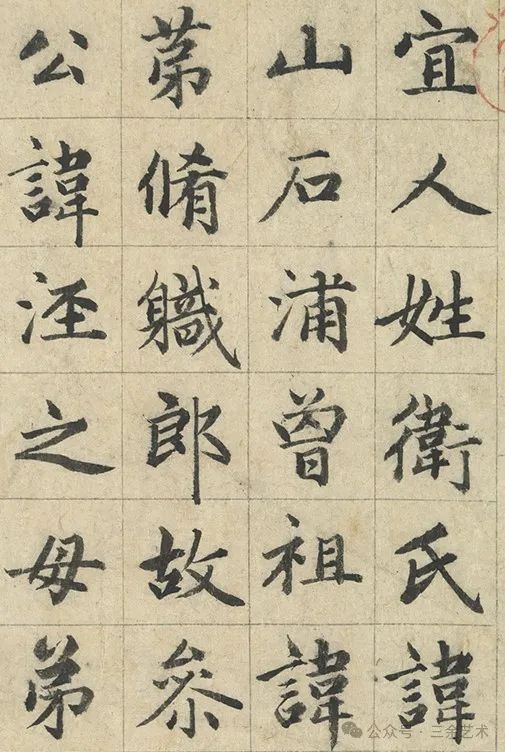 宜人姓衛氏諱
山石浦曾祖諱
苐脩軄郎故叅
公諱涇之母弟
公众号·三余艺术